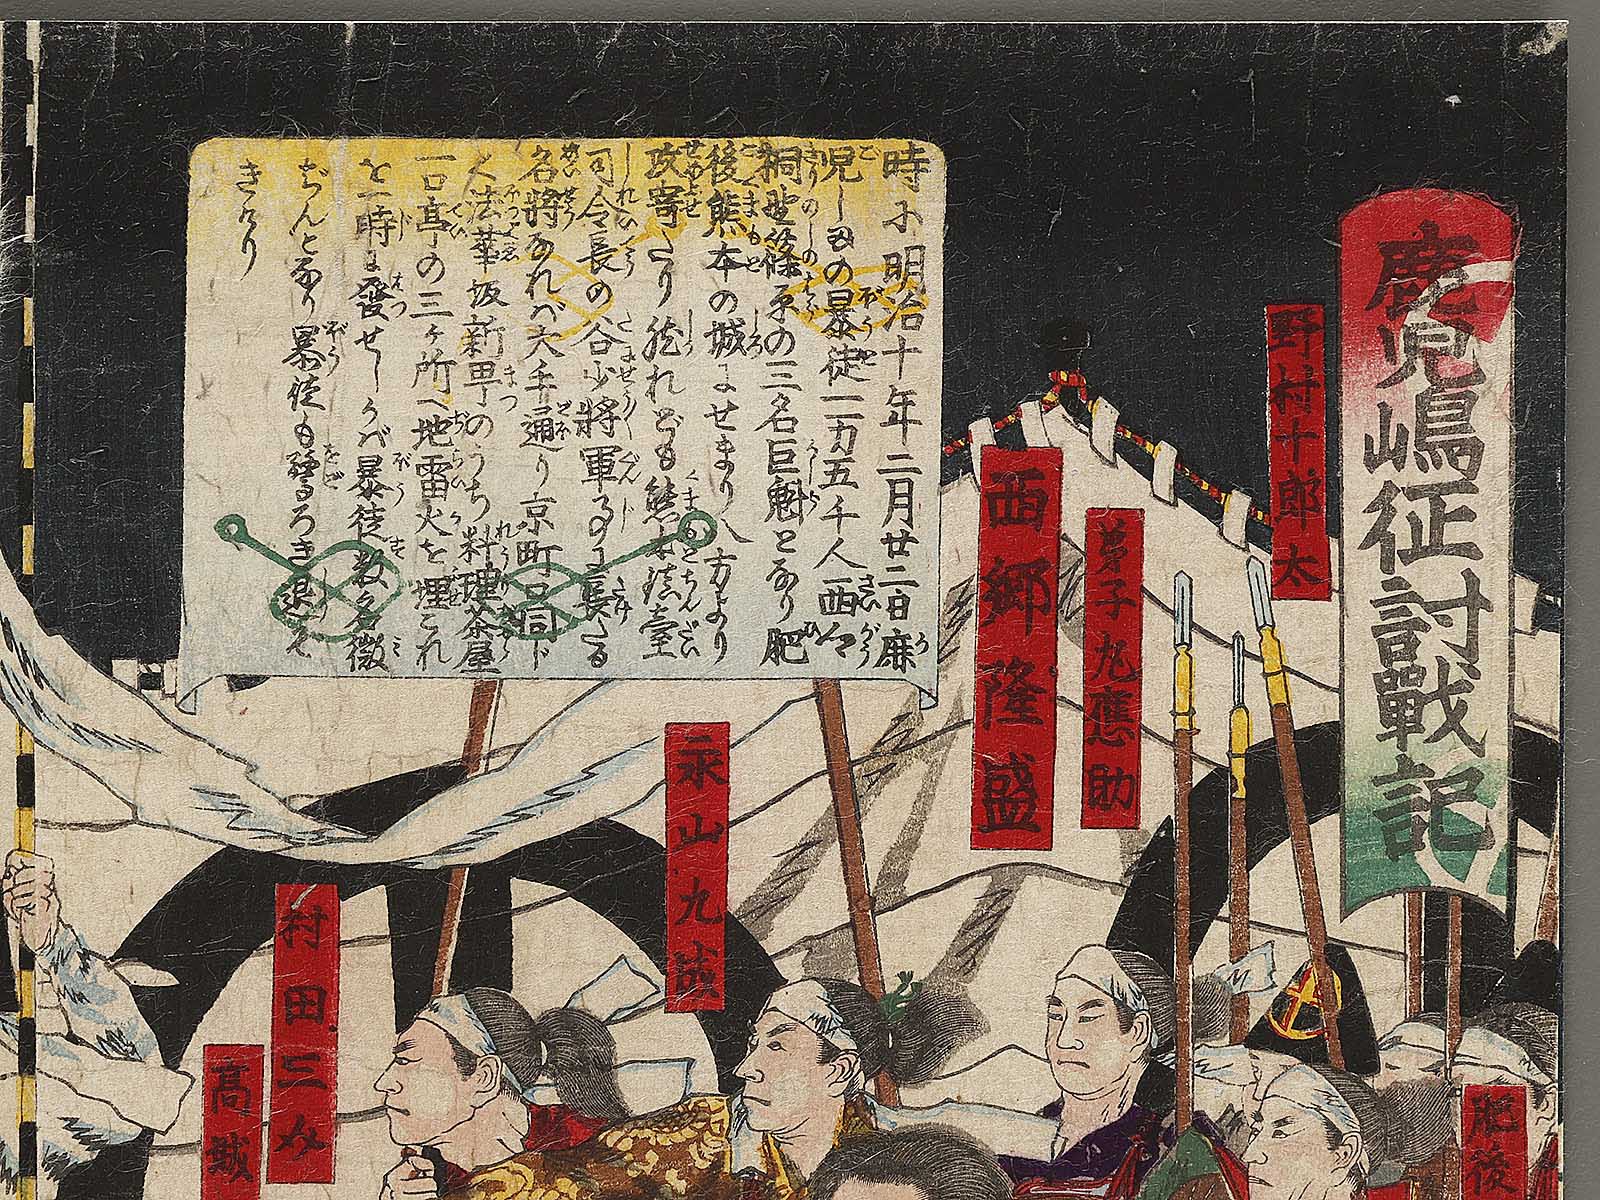 鹿児嶋征討戰記
野村十郎太
弟子丸應助
西郷隆盛
時に明治十年二月廿二日鹿
児しまの暴徒一万五千人西郷
桐野篠原の三名巨魁となり肥
後熊本の城にせまり八方より
攻寄たり然れども熊本鎮臺
司令長の谷少将軍事に長たる
名将なれバ大手通り京町口同じ
く法華坂新畢のうち料理茶屋
一日亭の三ヶ所へ地雷火を埋これ
を一時に發せしかバ暴徒数多微
ぢんとなり暴徒も驚ろき退ぞ
きけり
永山九成
村田三介
高城
肥後